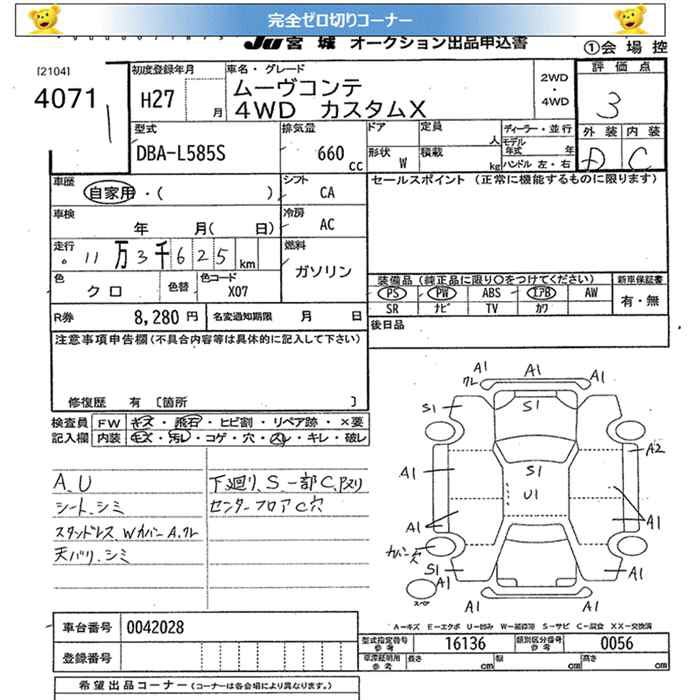 完全ゼロ切りコーナー
JU 宮城 オークション出品申込書
①会場控
[2104]
4071
初度登録年月
H27 月
車名・グレード
ムーヴコンテ
4WD カスタムX
2WD
・
4WD
評価点
3
外装 内装
D C
型式
DBA-L585S
排気量
660 cc
ドア
形状 W
定員 人
積載 kg
ディーラー・並行
モデル年式 年
ハンドル 左・右
車歴
自家用・( )
シフト
CA
セールスポイント (正常に機能するものに限ります)
車検
年 月( 日)
冷房
AC
走行
11万3千625km
燃料
ガソリン
色
クロ
色替
色コード
X07
装備品(純正品に限り○をつけてください)
新車保証書
PS PW ABS エアB AW
有・無
SR ナビ TV カワ
R券
8,280円
名変通知期限 月 日
後日品
注意事項申告欄(不具合内容等は具体的に記入して下さい)
修復歴 有 〔箇所 〕
検査員 FW キズ・飛石・ヒビ割・リペア跡・×要
記入欄 内装 キズ・汚レ・コゲ・穴・スレ・キレ・破レ
A、U
シート、シミ
スタッドレス、Wカバー A、ワレ
天バリ、シミ
下廻リ、S、一部C、Pヌリ
センターフロアC穴
A1
ワレ
A1
A1
S1
S1
A1
A2
A1
S1
U1
A1
A1
カバーキズ
S1
A1
スペア
A1
A1
A1
A＝キズ E＝エクボ U＝凹み W＝補修跡 S＝サビ C＝腐食 XX＝交換済
車台番号
0042028
登録番号
型式指定番号
参考
16136
類別区分番号
参考
0056
車庫証明用
参考
長さ cm
幅 cm
高さ cm
希望出品コーナー(コーナーは各会場により異なります。)